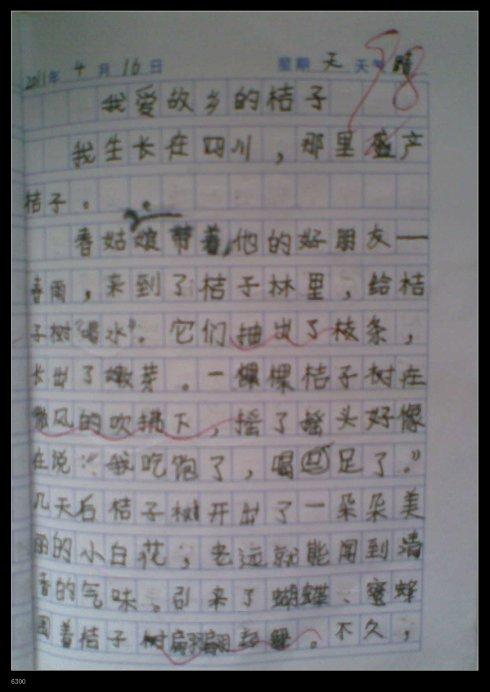 2011年 4 月 16 日 星期 天 天气 晴
98
我爱故乡的桔子
我生长在四川，那里盛产
桔子。
春姑娘带着他的好朋友——
春雨，来到了桔子林里，给桔
子树"喝水"。它们抽出了枝条，
长出了嫩芽。一棵棵桔子树在
微风的吹拂下，摇了摇头好像
在说："我吃饱了，喝足了。"
几天后桔子树开出了一朵朵美
丽的小白花，老远就能闻到清
香的气味。引来了蝴蝶、蜜蜂
围着桔子树翩翩起舞。不久，
6300